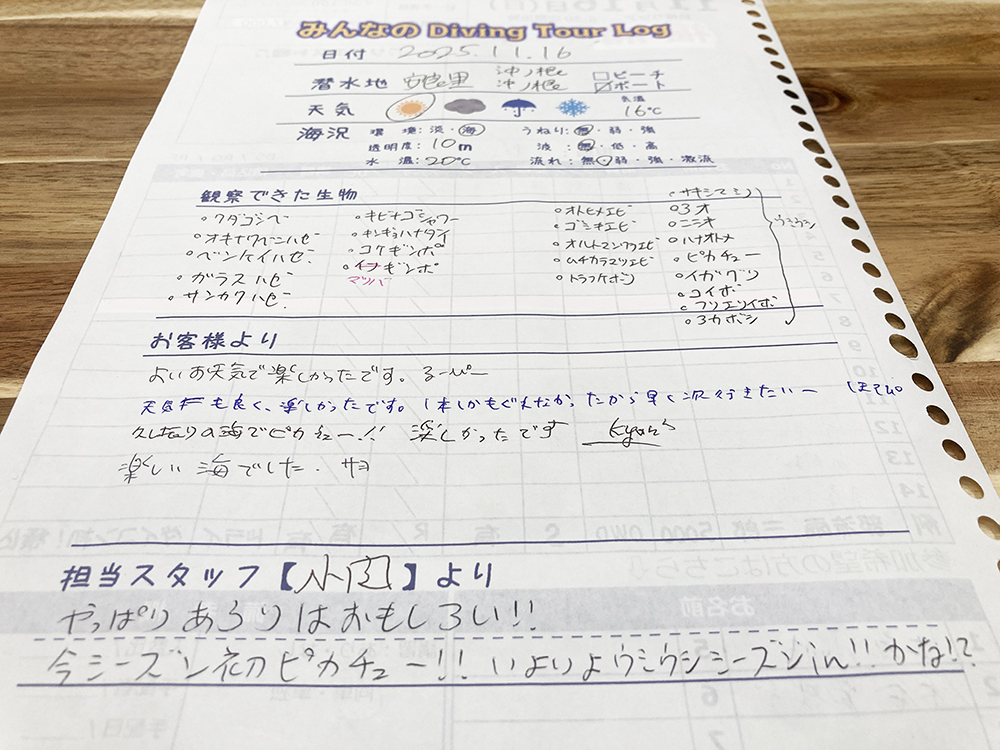 みんなの Diving Tour Log
日付 2025.11.16
潜水地 安良里 沖ノ根 沖ノ根 □ビーチ ☑ボート
天気 気温 16℃
海況 環境:淡・海 うねり:無・弱・強
透明度:10m 波:無・低・高
水温:20℃ 流れ:無・弱・強・激流
観察できた生物
・クダゴンベ
・オキナワベニハゼ
・ベンケイハゼ
・ガラスハゼ
・サンカクハゼ
・キビナゴシャワー
・キンギョハナダイ
・コケギンポ
・イヌギンポ
マツバ
・オトヒメエビ
・ゴシキエビ
・オルトマンワラエビ
・ムチカラマツエビ
・トラフケボリ
・サキシマミノ
・ミオ
・ニシキ
・ハナオトメ
・ピカチュー
・イガグリ
・コイボ
・フリエリイボ
・ミカボシ
ウミウシ
お客様より
よいお天気で楽しかったです。るーぴー
天気も良く、楽しかったです。1本しかもぐれなかったから早く次行きたいー
久しぶりの海でピカチュー!! 楽しかったです
楽しい海でした. サヨ
担当スタッフ【小図】より
やっぱりあらりはおもしろい!!
今シーズン初ピカチュー!! いよいよウミウシシーズンin!!かな!?